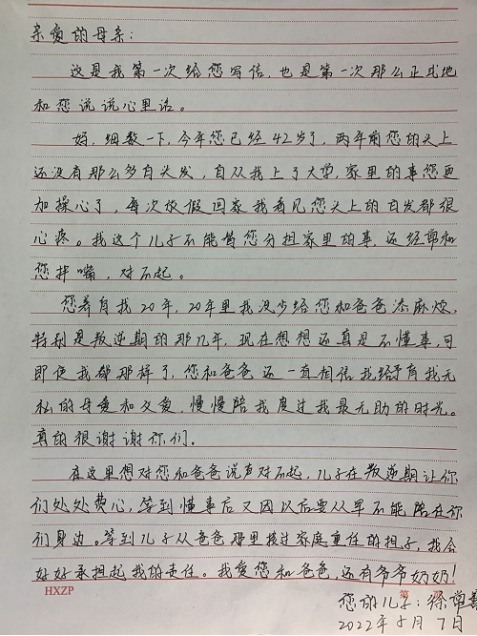 亲爱的母亲：
这是我第一次给您写信，也是第一次那么正式地
和您说说心里话。
妈，细数一下，今年您已经42岁了，两年前您的头上
还没有那么多白头发，自从我上了大学，家里的事您更
加操心了，每次放假回家我看见您头上的白发都很
心疼。我这个儿子不能替您分担家里的事，还经常和
您拌嘴，对不起。
您养育我20年，20年里我没少给您和爸爸添麻烦，
特别是叛逆期的那几年，现在想想还真是不懂事，可
即使我都那样了，您和爸爸还一直相信我给予有我无
私的母爱和父爱，慢慢陪我度过我最无助的时光。
真的很谢谢你们．
在这里想对您和爸爸说声对不起，儿子在叛逆期让你
们处处费心，等到懂事后又因以后要从军不能陪在你
们身边。等到儿子从爸爸那里接过家庭重任的担子，我会
好好承担起我的责任。我爱您和爸爸，还有爷爷奶奶！
HXZP 第
您的儿子：徐常
2022年5月7日